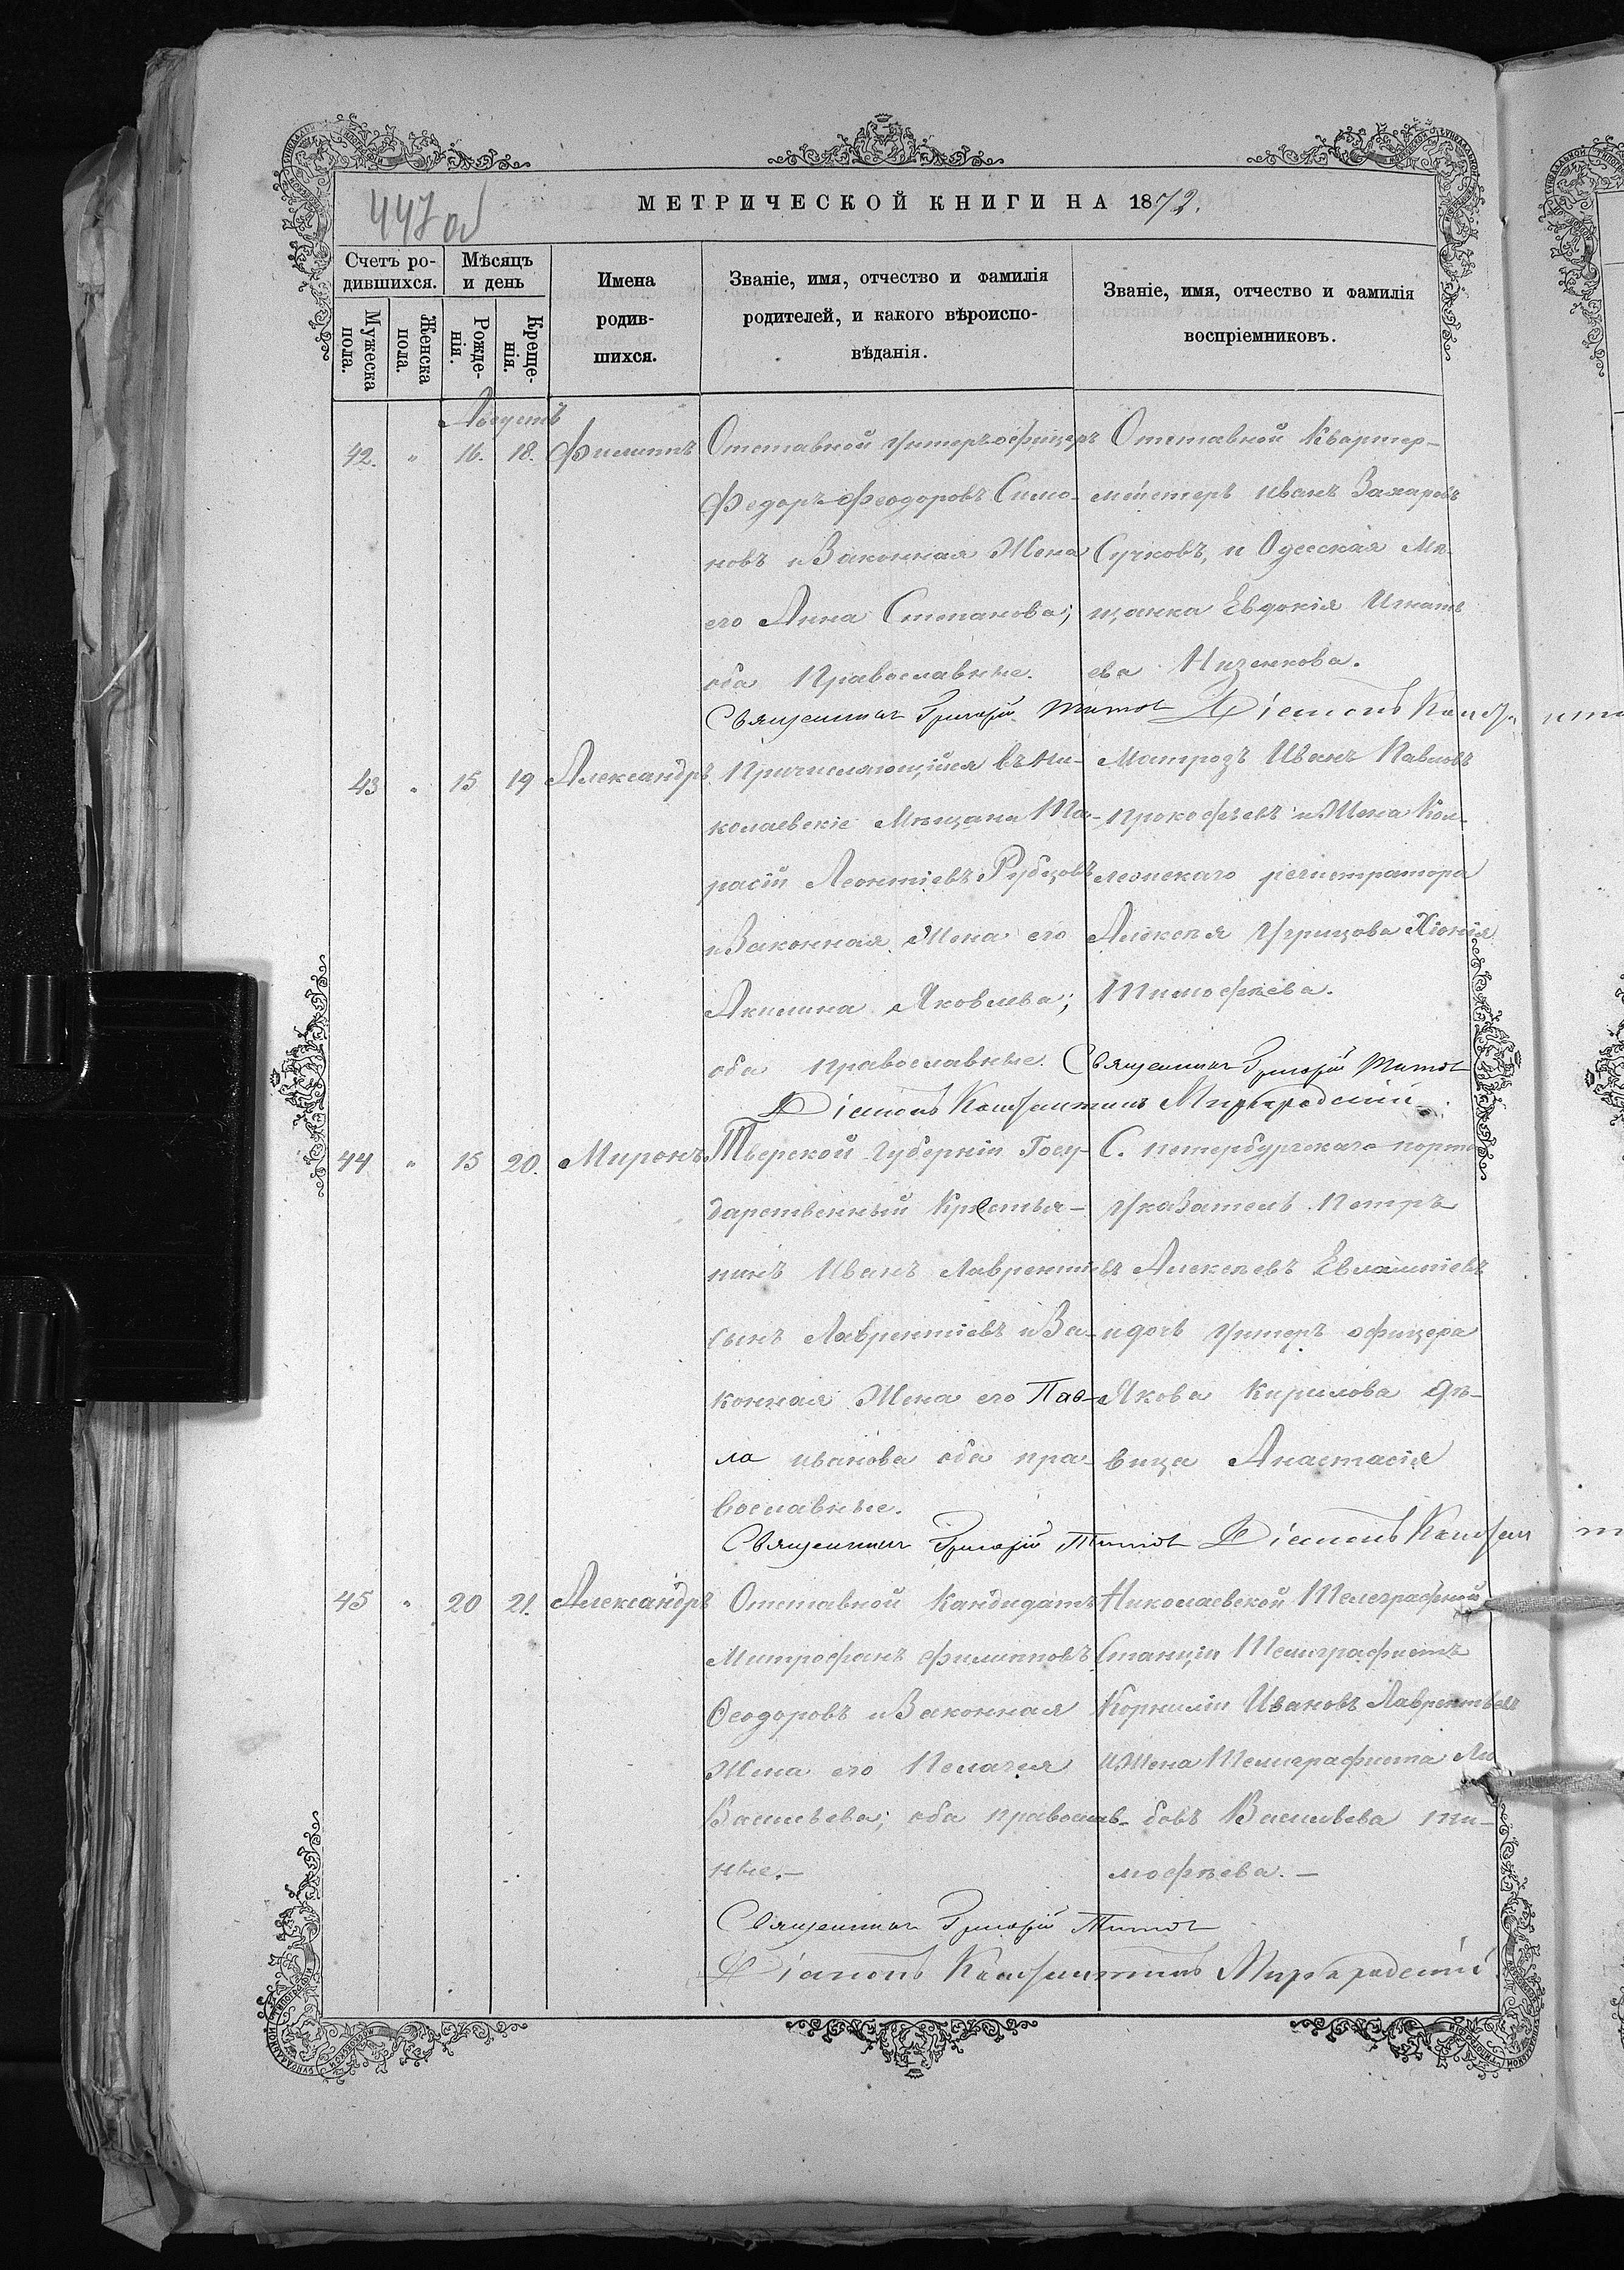 447 об
МЕТРИЧЕСКОЙ КНИГИ НА 1872.
Счетъ ро-
дившихся.
Мужеска пола.
Женска пола.
Мѣсяцъ
и день
Рожде-
нія.
Креще-
нія.
Имена
родив-
шихся.
Званіе, имя, отчество и фамилія
родителей, и какого вѣроиспо-
вѣданія.
Званіе, имя, отчество и фамилія
воспріемниковъ.
Августъ
42. " 16. 18. Филиппъ
Отставной Унтеръ-офицеръ
Федоръ Феодоровъ Симо-
новъ и Законная Жена
его Анна Степанова;
оба Православные.
Отставной Квартер-
мейстеръ Иванъ Захаровъ
Сучковъ, и Одесская Мѣ-
щанка Евдокія Игнать
ева Низенкова.
Священникъ Григорій Титов Діаконъ Конст
43 " 15 19 Александръ
Причисляющійся въ Ни-
колаевскіе Мѣщане Та-
расій Леонтіевъ Рубцовъ
и Законная Жена его
Акилина Яковлева;
оба православные.
Матрозъ Иванъ Павловъ
Прокофьевъ и Жена Кол-
лежскаго регистратора
Алексѣя Угрицова Хіонія
Тимофѣева.
Священникъ Григорій Титов
Діаконъ Константинъ Миргородскій
44 " 15 20. Миронъ
Тверской Губерніи Госу-
дарственный Крестья-
нинъ Иванъ Лаврентіевъ
сынъ Лаврентіевъ и За-
конная Жена его Пав-
ла Иванова оба пра-
вославные.
С. петербургскаго порта
Указатель Петръ
Алексѣевъ Евлампіевъ
и дочь Унтеръ офицера
Якова Кирилова дѣ-
вица Анастасія
Священникъ Григорій Титов Діаконъ Констан
45 " 20 21. Александръ
Отставной Кандидатъ
Митрофанъ Филипповъ
Ѳеодоровъ и Законная
Жена его Пелагея
Васильева; оба православ-
ные.—
Николаевской Телеграфной
Станціи Телеграфистъ
Корнилій Ивановъ Лаврентьевъ
и Жена Телеграфиста Лю
бовь Васильева Ти-
мофѣева.—
Священникъ Григорій Титов
Діаконъ Константинъ Миргородскій